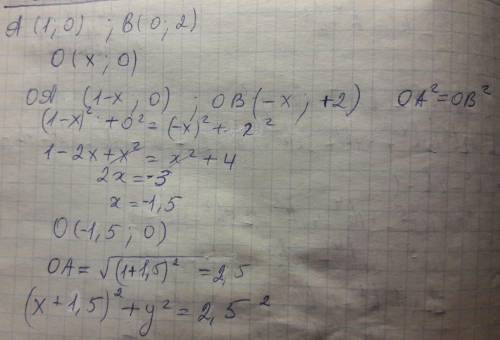 A (1,0) ; B(0; 2)
O(x; 0)
OA (1-x, 0) ; OB(-x; +2) OA²=OB²
(1-x)² + 0² = (-x)² + 2²
1-2x+x² = x² + 4
2x = -3
x = -1,5
O(-1,5; 0)
OA = √(1+1,5)² = 2,5
(x+1,5)² + y² = 2,5²